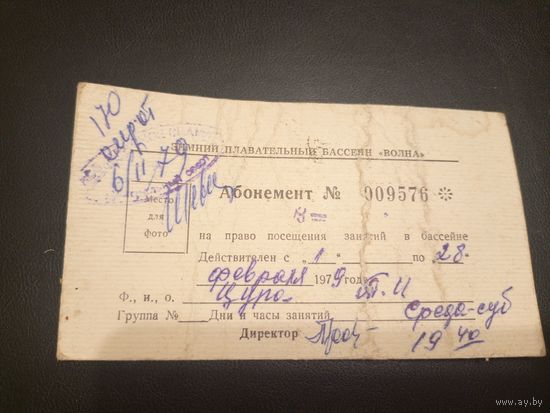 170
6/II 79
ЗИМНИЙ ПЛАВАТЕЛЬНЫЙ БАССЕЙН «ВОЛНА»
Абонемент № 009576
Место
для
фото
на право посещения занятий в бассейне
Действителен с „1“ по „28“
февраля 1979 года
Ф., и., о.
Группа № Дни и часы занятий среда-суб
Директор 19 40
www.ay.by